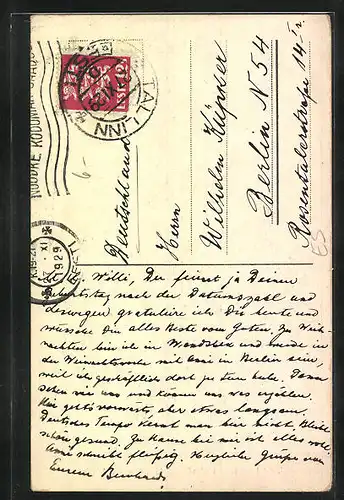 NÕUDKE KODUMAA
TALLINN
XI 29
Deutschland
Herrn
Wilhelm Küpper
Berlin N 54
Rosentalerstraße 14 I r.
XI
1929
ES
6-
L. Willi, Du feierst ja Deinen
Geburtstag nach der Datumszahl und
deswegen gratuliere ich Dir heute und
wünsche Dir alles Beste vom Guten. Zu Weih-
nachten bin ich in Wandsbek und werde in
der Weihnachtswoche mit Anni in Berlin sein,
weil ich geschäftlich dort zu tun habe. Dann
sehen wir uns und können uns was erzählen.
Hier gehts vorwärts, aber etwas langsam.
Deutsches Tempo kennt man hier nicht. Bleib
schön gesund. Zu Hause bei mir ist alles wohl.
Anni schreibt fleißig. Herzliche Grüße vom
Eurem Bernhard